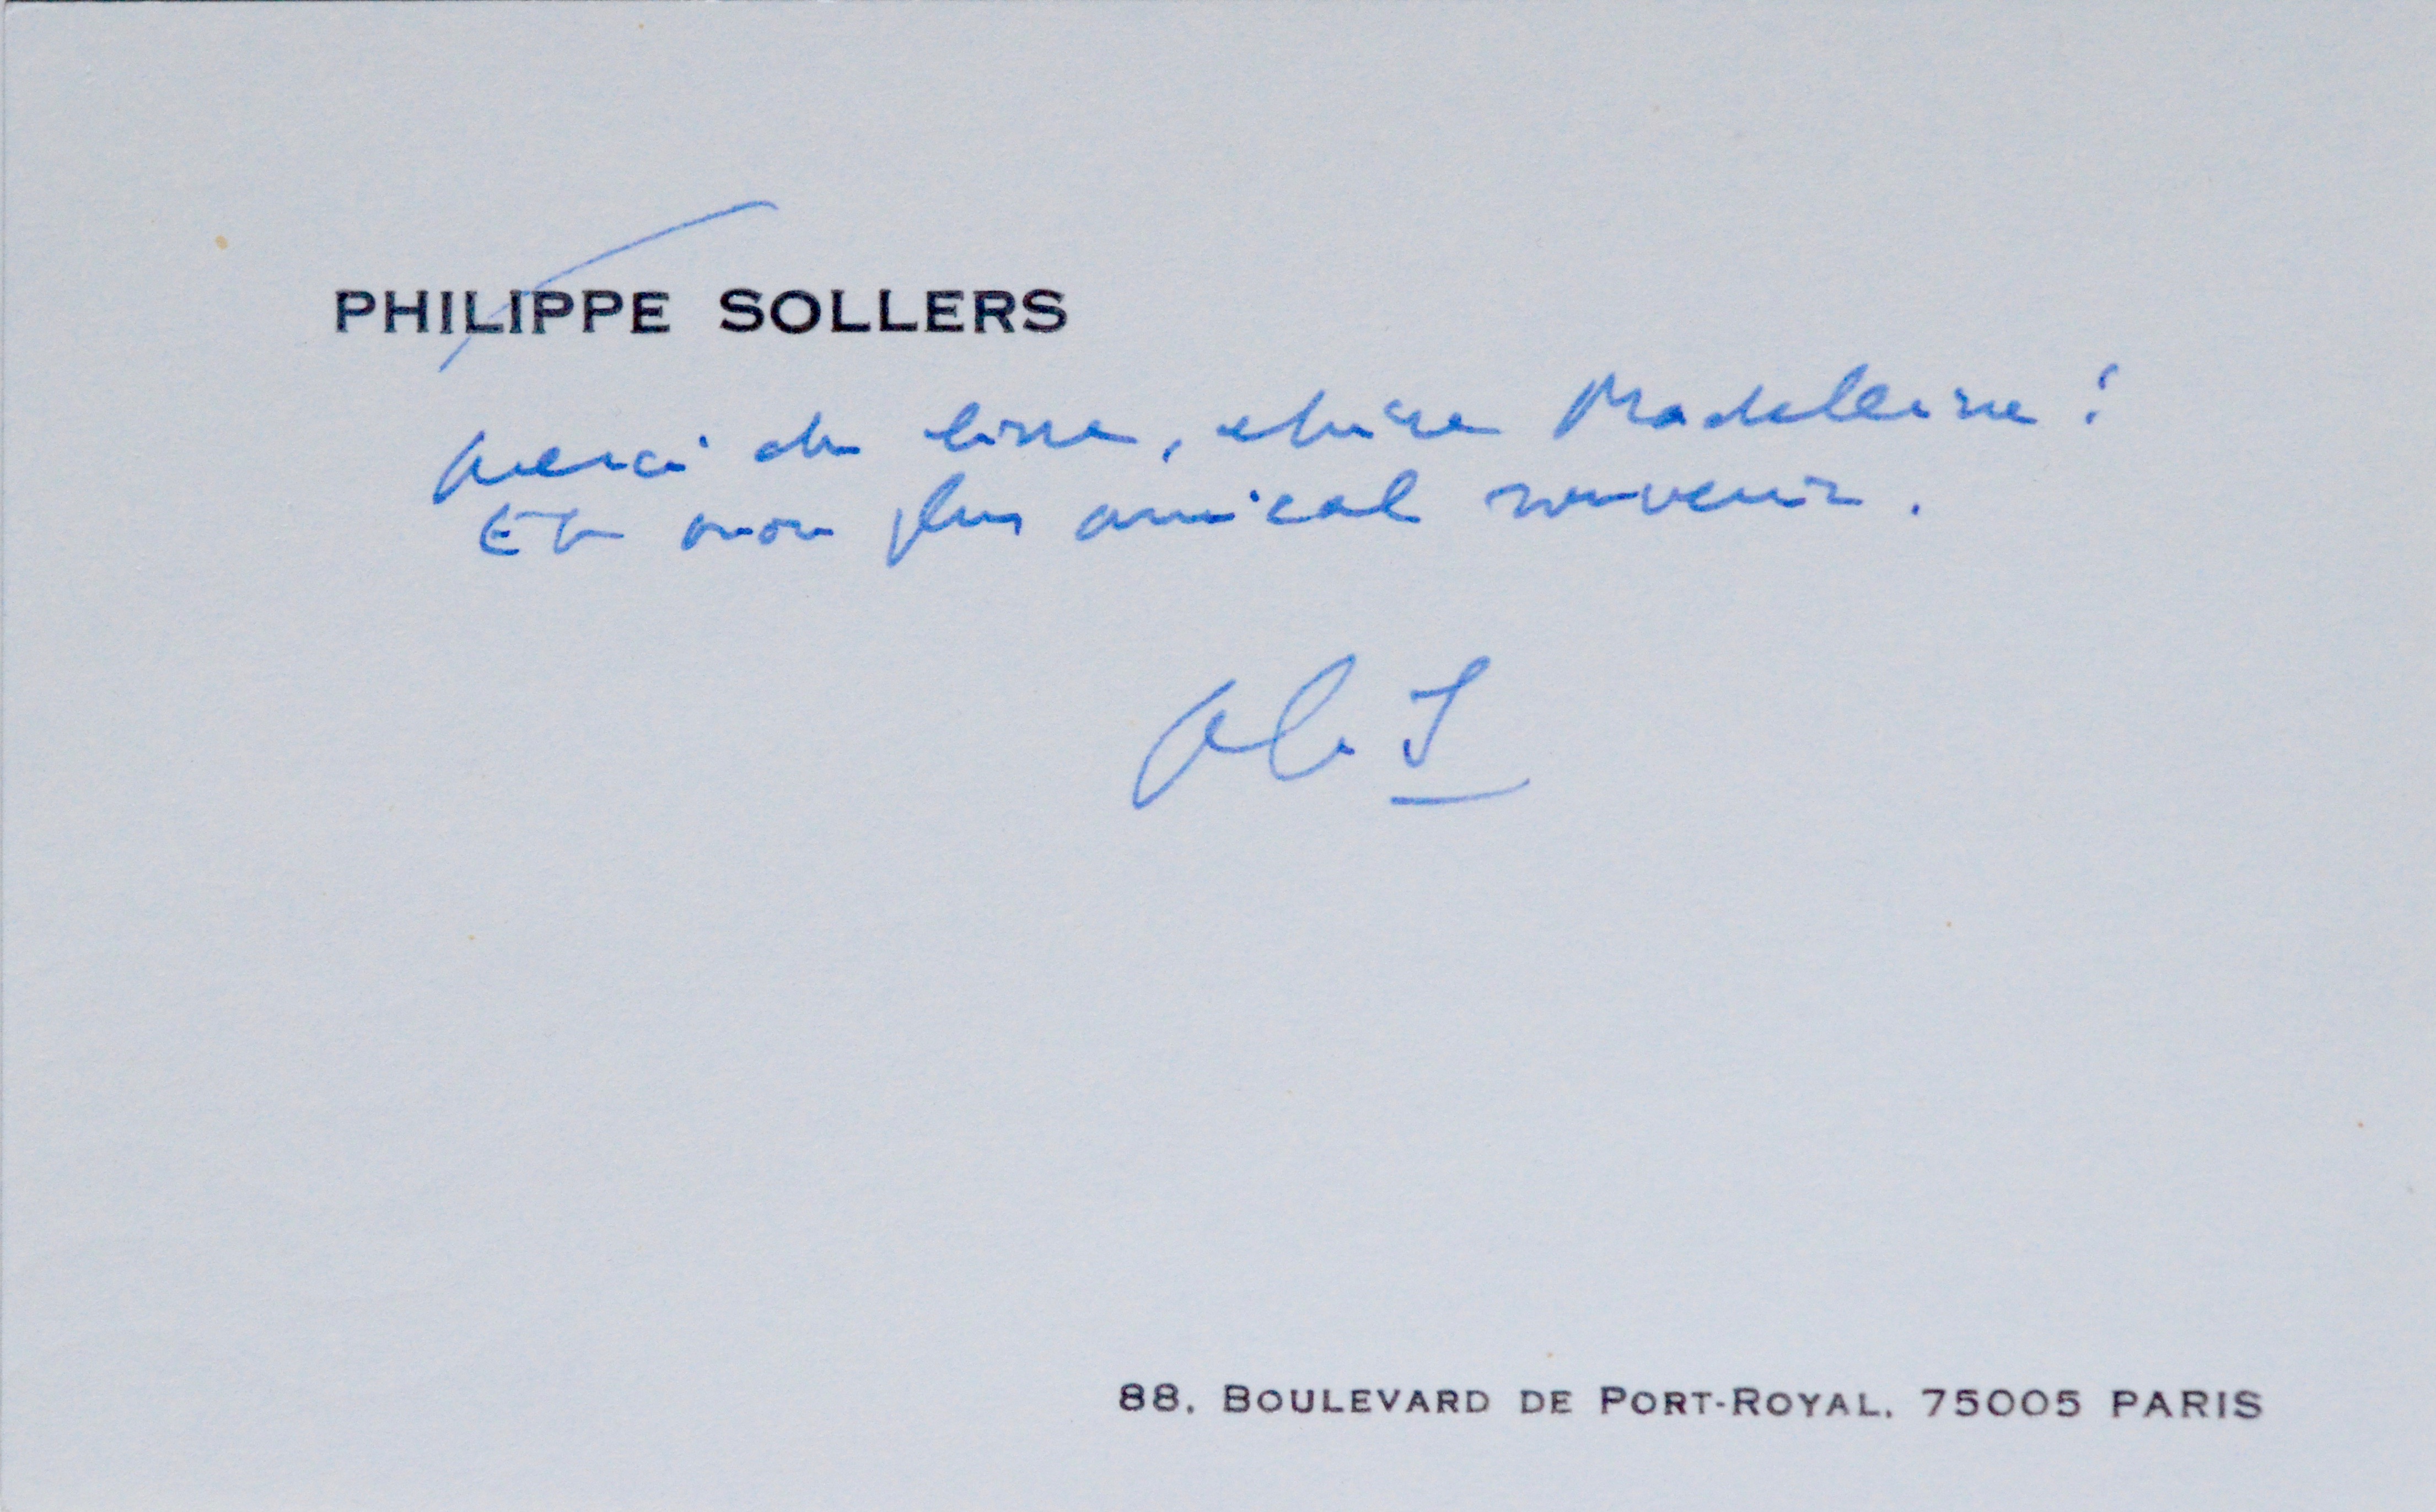 PHILIPPE SOLLERS
Merci du livre, chère Madeleine !
Et mon plus amical souvenir.
88, BOULEVARD DE PORT-ROYAL, 75005 PARIS